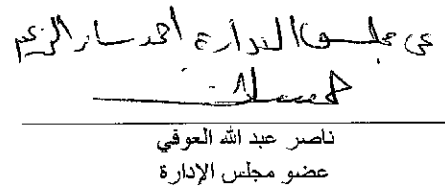 عن مجلس الإدارة أحمد سار الزعيم
ناصر عبد الله العوفي
عضو مجلس الإدارة